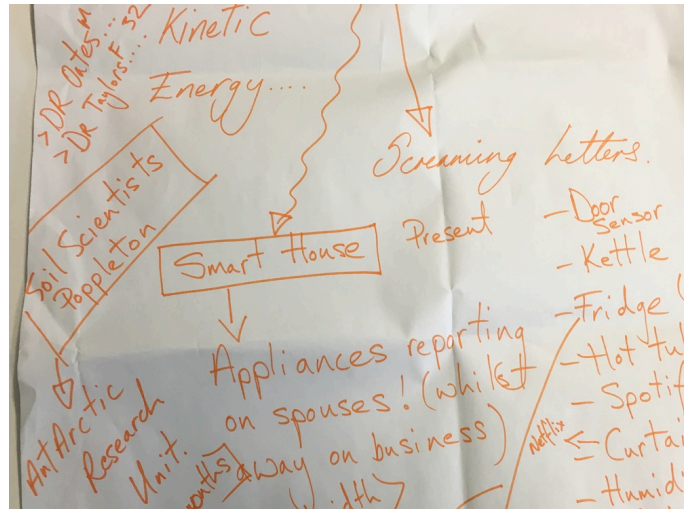 > DR Oates... M
> DR Taylors.... F 32
Kinetic
Energy....
Soil Scientists
Poppleton
AntArctic
Research
Unit.
Smart House
Appliances reporting
on spouses! (whilst
away on business)
Screaming Letters.
Present
- Door
Sensor
- Kettle
- Fridge (
- Hot tu
- Spotif
Netflix ← - Curtai
- Humid